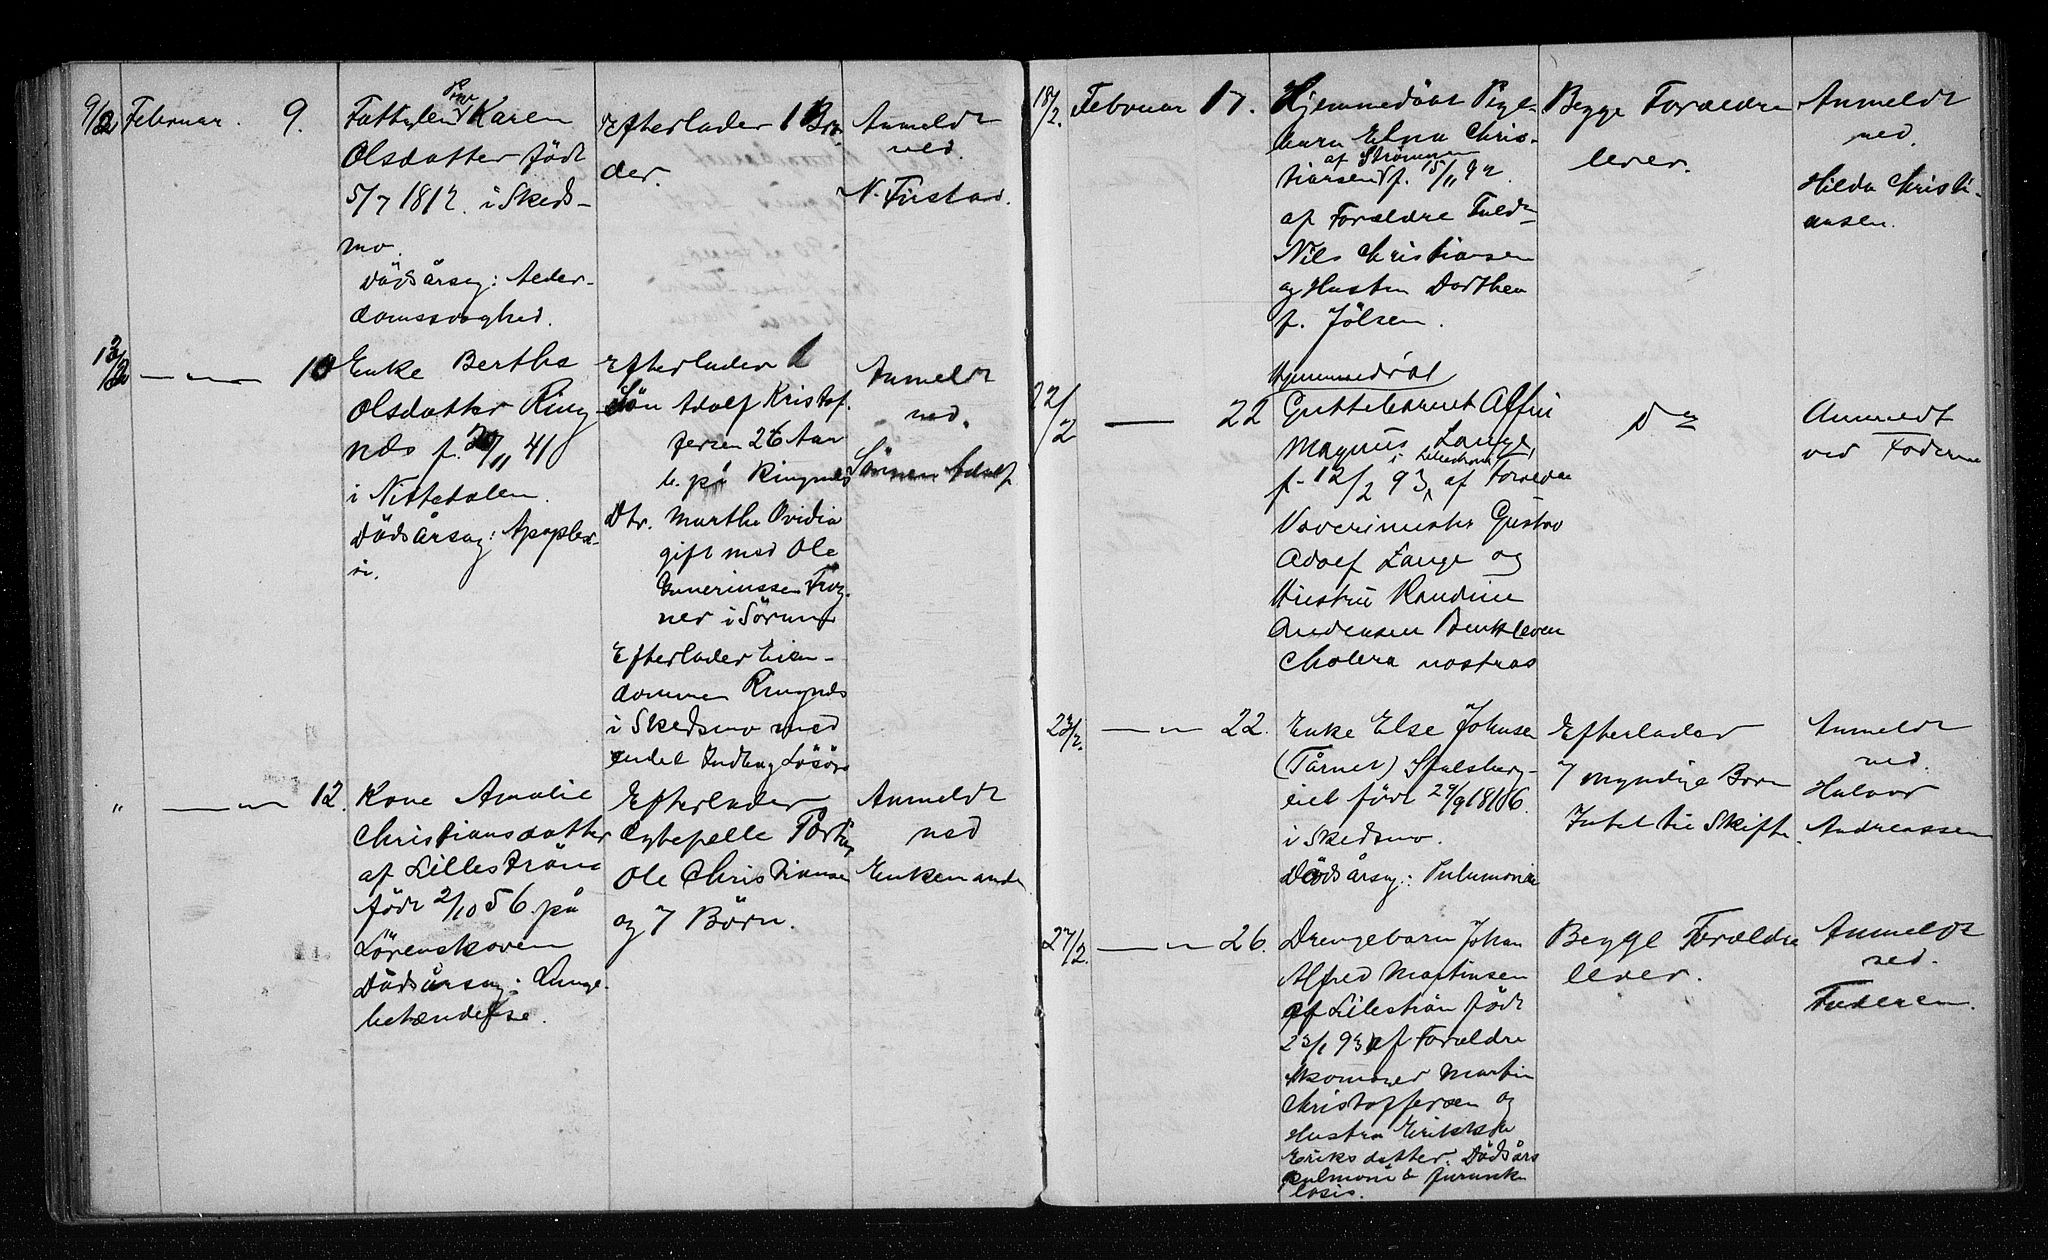 9/2 Februar. 9.
Fattiglem Pige Karen
Olsdatter født
5/7 1812. i Skeds-
mo.
Dödsårsag: Alder-
domssvaghed.
Efterlader 1 Bro-
der.
Anmeldt
ved.
N. Tustad.
13/2 — " — 10
Enke Berthe
Olsdatter Ring
næs f. 20/11 41
i Nittedalen.
Dödsårsag: Apoplex-
i.
Efterlader 1
Sön Adolf Kristof-
fersen 26 Aar
b. på Ringnæs
Dtr. Marthe Ovidia
gift med Ole
Gunerinssen Frog-
ner i Sörum
Efterlader Eien-
dommen Ringnæs
i Skedsmo med
endel Indbo og Lösöre
Anmeldt
ved.
Sönnen Adolf
" — " — 12.
Kone Amalie
Christiansdatter
af Lilleström
født 2/10 56. på
Lörenskoven
Dödsårsag: Lunge-
betændelse.
Efterlader
Ole Christiansen
og 7 Börn.
Anmeldt
ved
Enkemanden
18/2. Februar 17.
Hjemmedöbt Pige-
barn Elna Chris-
af Strömmen
tiansen f. 15/11 92.
af Forældre
Nils Christiansen
og Hustru Dorthea
f. Jölsen.
Begge Forældre
lever.
Anmeldt
ved.
Hilda Christi-
ansen.
22/2 — 22
Hjemmedöbt
Guttebarnet Alfin
Magnus Lange,
i Lilleström
f. 12/2 93, af Forældre
Væverimester Gustav
Adolf Lange og
Hustru Randine
Andersen
Cholera nostras
Do
Anmeldt
ved Faderen
23/2. — " — 22.
Enke Else Johnsen
(Tårnet) Stalsberg-
eiet født 29/9 1806.
i Skedsmo.
Dödsårsag: Pulumonia
Efterlader
7 myndige Börn
Intet til Skifte.
Anmeldt
ved.
Halvor
Andreassen
27/2. — " — 26.
Drengebarn Johan
Alfred Martinsen
af Lilleström född
23/1 93 af Forældre
Skomager Martin
Christoffersen og
Hustru
Eriksdatter. Dödsårs
pulmoni & furunku
losis.
Begge Forældre
lever.
Anmeldt
ved.
Faderen.